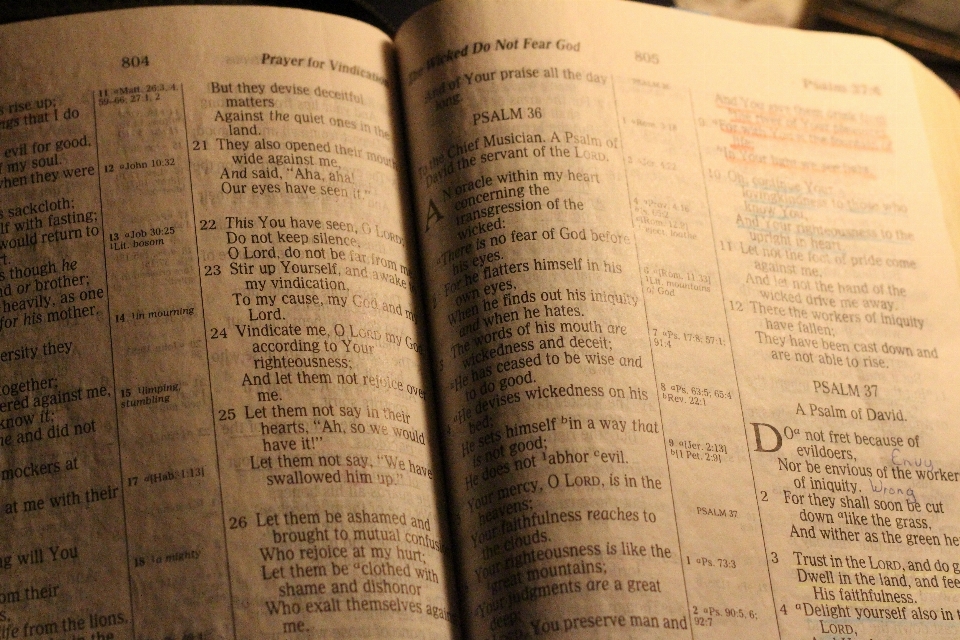 804
Prayer for Vindication
s rise up;
ngs that I do
evil for good.
f my soul.
when they were
s sackcloth;
lf with fasting;
would return to
rt.
s though he
nd or brother;
heavily, as one
for his mother.
ersity they
together;
ered against me,
know it;
ne and did not
mockers at
at me with their
ng will You
om their
s.
life from the lions.
11 a Matt. 26:3, 4,
59–66; 27:1, 2
12 a John 10:32
13 a Job 30:25
1 Lit. bosom
14 1 in mourning
15 1 limping,
stumbling
17 a [Hab. 1:13]
18 1 a mighty
But they devise deceitful
matters
Against the quiet ones in the
land.
21 They also opened their mouth
wide against me,
And said, “Aha, aha!
Our eyes have seen it.”
22 This You have seen, O LORD;
Do not keep silence;
O Lord, do not be far from me
23 Stir up Yourself, and awake
my vindication,
To my cause, my God and my
Lord.
24 Vindicate me, O LORD my God,
according to Your
righteousness;
And let them not rejoice over
me.
25 Let them not say in their
hearts, “Ah, so we would
have it!”
Let them not say, “We have
swallowed him up.”
26 Let them be ashamed and
brought to mutual confusion
Who rejoice at my hurt;
Let them be a clothed with
shame and dishonor
Who exalt themselves against
me.
The Wicked Do Not Fear God
805
Psalm 37:4
And of Your praise all the day
long.
PSALM 36
To the Chief Musician. A Psalm of
David the servant of the LORD.
AN oracle within my heart
concerning the
transgression of the
wicked:
There is no fear of God before
his eyes.
For he flatters himself in his
own eyes,
When he finds out his iniquity
and when he hates.
The words of his mouth are
wickedness and deceit;
He has ceased to be wise and
to do good.
He devises wickedness on his
bed;
He sets himself b in a way that
is not good;
He does not 1 abhor c evil.
Your mercy, O LORD, is in the
heavens;
Your faithfulness reaches to
the clouds.
Your righteousness is like the
great mountains;
Your judgments are a great
deep;
You preserve man and
6 a [Rom. 11:33]
1 Lit. mountains
of God
7 a Ps. 17:8; 57:1;
91:4
8 a Ps. 63:5; 65:4
b Rev. 22:1
9 a [Jer. 2:13]
b [1 Pet. 2:9]
PSALM 37
1 a Ps. 73:3
2 a Ps. 90:5, 6;
92:7
10 Oh, continue Your
lovingkindness to those who
know You,
And Your righteousness to the
upright in heart.
11 Let not the foot of pride come
against me,
And let not the hand of the
wicked drive me away.
12 There the workers of iniquity
have fallen;
They have been cast down and
are not able to rise.
PSALM 37
A Psalm of David.
DO a not fret because of
evildoers,
Envy
Nor be envious of the workers
of iniquity.
Wrong
2 For they shall soon be cut
down a like the grass,
And wither as the green he
3 Trust in the LORD, and do g
Dwell in the land, and fee
His faithfulness.
4 a Delight yourself also in t
LORD,